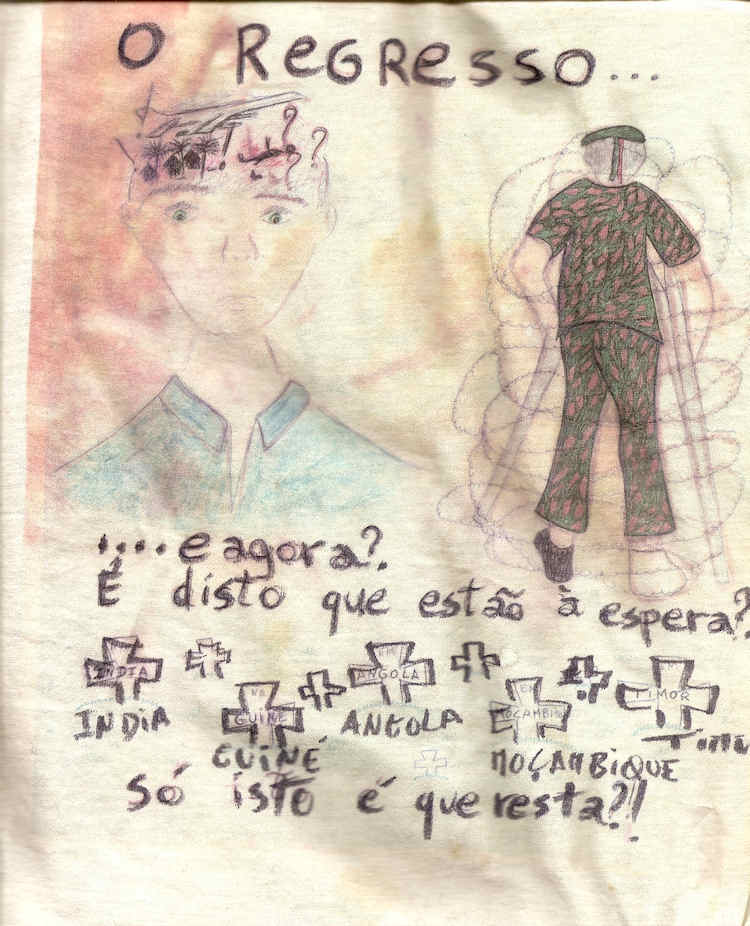 O REGRESSO...
....e agora?
É disto que estão à espera?
INDIA
EM
ANGOLA
NA
GUINÉ
EM
MOÇAMBIQ
TIMOR
INDIA
ANGOLA
Timor
GUINÉ
MOÇAMBIQUE
Só isto é que resta?!